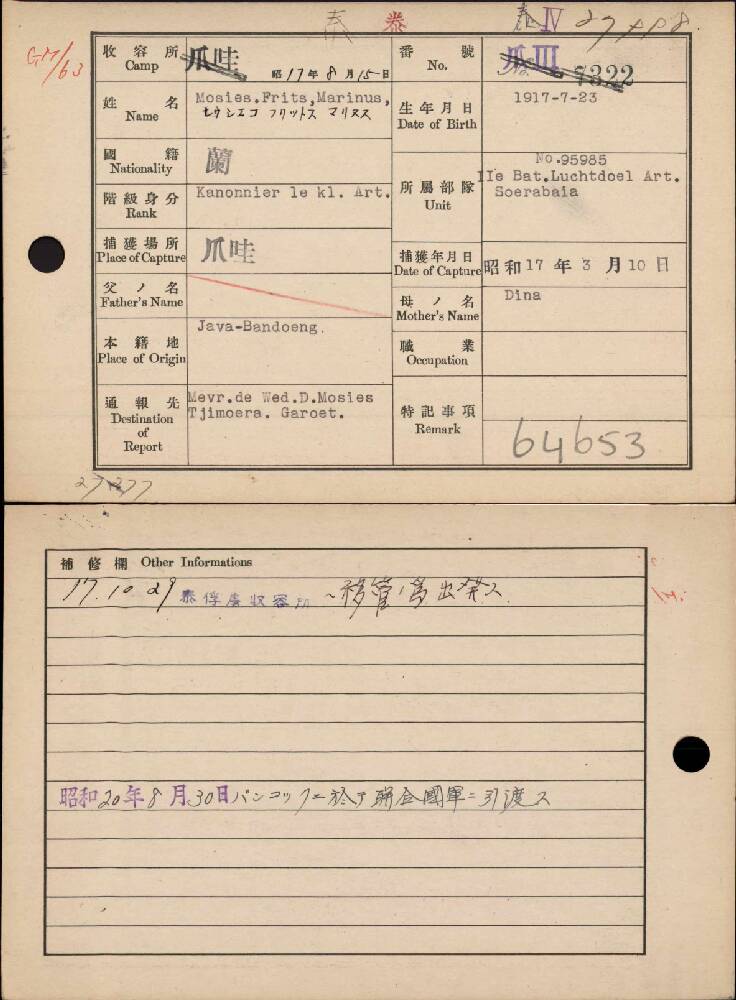 泰 泰 泰 IV
GM/63
收容所 Camp 爪哇 昭17年8月15日
番號 No. 爪III 7322
姓名 Name Mosies.Frits,Marinus,
モウシエコ フリットス マリヌス
生年月日 Date of Birth 1917-7-23
國籍 Nationality 蘭
階級身分 Rank Kanonnier 1e kl. Art.
所屬部隊 Unit No.95985
IIe Bat.Luchtdoel Art.
Soerabaia
捕獲場所 Place of Capture 爪哇
捕獲年月日 Date of Capture 昭和17年3月10日
父ノ名 Father's Name
母ノ名 Mother's Name Dina
本籍地 Place of Origin Java-Bandoeng.
職業 Occupation
通報先 Destination of Report Mevr.de Wed.D.Mosies
Tjimoera. Garoet.
特記事項 Remark 64653
補修欄 Other Informations
17.10.29 泰俘虜収容所ヘ移管ノ為出発ス
昭和20年8月30日バンコックニ於テ聯合國軍ニ引渡ス